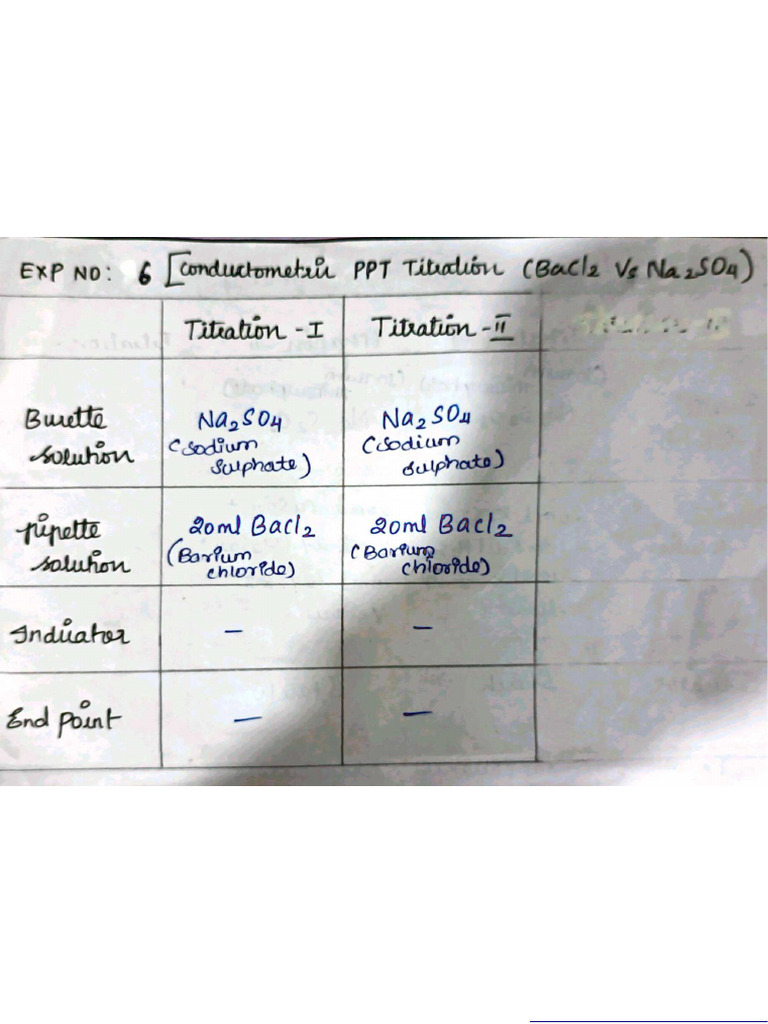 EXP NO: 6 [Conductometric PPT Titration (BaCl2 Vs Na2SO4)
Titration - I
Titration - II
Burette
solution
Na2SO4
(Sodium
Sulphate)
Na2SO4
(Sodium
Sulphate)
pipette
solution
20ml BaCl2
(Barium
chloride)
20ml BaCl2
(Barium
chloride)
Indicator
—
—
End point
—
—